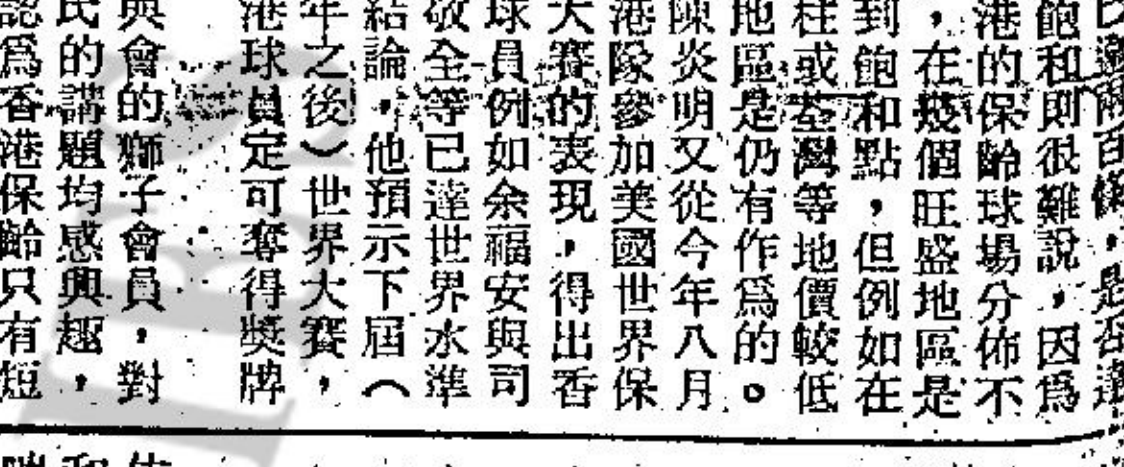 已達兩百條，是否達
飽和則很難說，因爲
港的保齡球場分佈不
，在幾個旺盛地區是
到飽和點，但例如在
柱或荃灣等地價較低
地區是仍有作爲的。
陳炎明又從今年八月
港隊參加美國世界保
大賽的表現，得出香
球員例如余福安與司
敬全等已達世界水準
結論，他預示下屆（
年之後）世界大賽，
港球員定可奪得獎牌
與會的獅子會員，對
民的講題均感興趣，
認爲香港保齡只有短